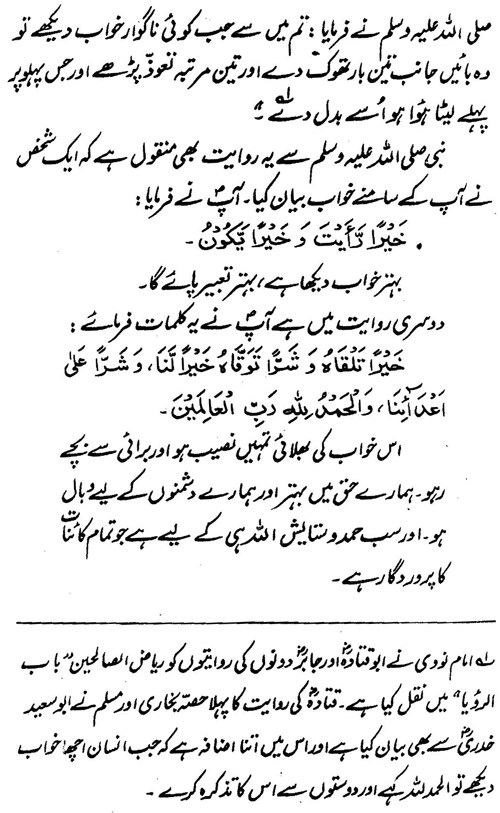 صلی اللہ علیہ وسلم نے فرمایا: تم میں سے جب کوئی ناگوار خواب دیکھے تو
وہ بائیں جانب تین بار تھوک دے اور تین مرتبہ تعوذ پڑھے اور جس پہلو پر
پہلے لیٹا ہوا ہو اُسے بدل دے لہ "
نبی صلی اللہ علیہ وسلم سے یہ روایت بھی منقول ہے کہ ایک شخص
نے آپ کے سامنے خواب بیان کیا۔ آپؐ نے فرمایا:
خَيْرًا رَّأَيْتَ وَ خَيْرًا يَّكُوْنُ۔
بہتر خواب دیکھا ہے، بہتر تعبیر پائے گا۔
دوسری روایت میں ہے آپؐ نے یہ کلمات فرمائے:
خَيْرًا تَلْقَاهُ وَ شَرًّا تَوَقَّاهُ خَيْرًا لَّنَا، وَ شَرًّا عَلٰى
اَعْدَآئِنَا، وَالْحَمْدُ لِلّٰهِ رَبِّ الْعَالَمِيْنَ۔
اس خواب کی بھلائی تمہیں نصیب ہو اور برائی سے بچے
رہو۔ ہمارے حق میں بہتر اور ہمارے دشمنوں کے لیے وبال
ہو۔ اور سب حمد و ستایش اللہ ہی کے لیے ہے جو تمام کائنات
کا پروردگار ہے۔
لہ امام نووی نے ابو قتادہؓ اور جابرؓ دونوں کی روایتوں کو ریاض الصالحین "باب
الرؤیا" میں نقل کیا ہے۔ قتادہؓ کی روایت کا پہلا حصہ بخاری اور مسلم نے ابو سعید
خدریؓ سے بھی بیان کیا ہے اور اس میں اتنا اضافہ ہے کہ جب انسان اچھا خواب
دیکھے تو الحمد للہ کہے اور دوستوں سے اس کا تذکرہ کرے۔